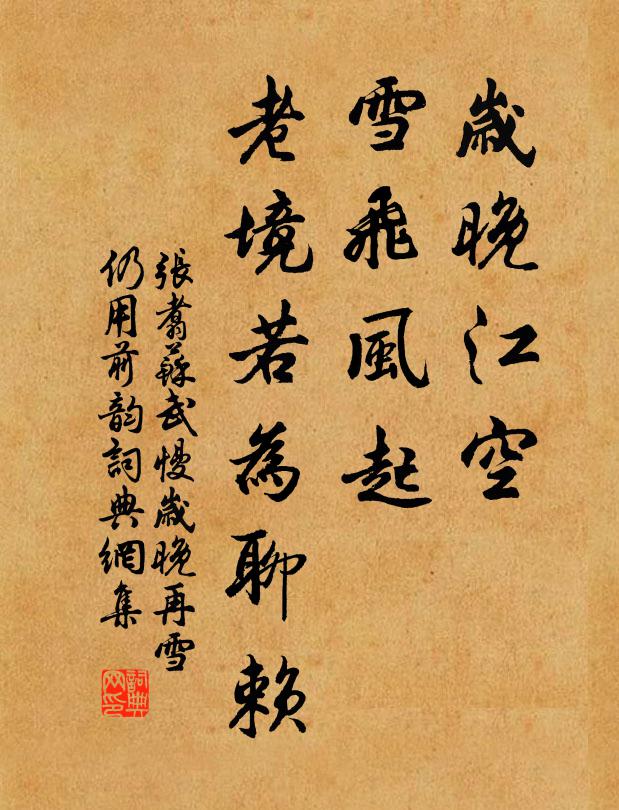 歲晚江空
雪飛風起
老境若為聊賴
張翥蘇武慢歲晚再雪
仍用前韵詞典網集
詞典
网印